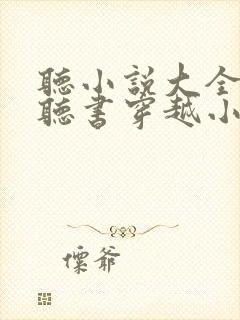 聽小說大全
聽書穿越小
爺